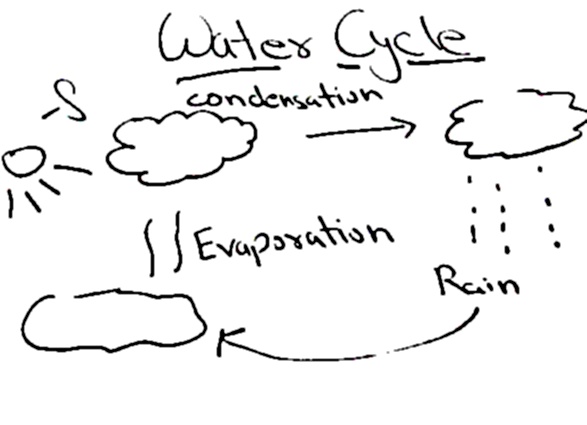 Water Cycle
condensation
S
Evaporation
Rain